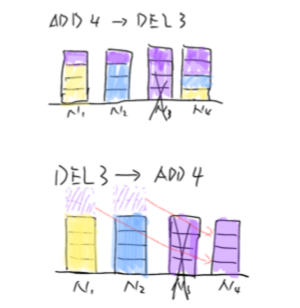 ADD 4 → DEL 3
N₁ N₂ N₃ N₄
DEL 3 → ADD 4
N₁ N₂ N₃ N₄